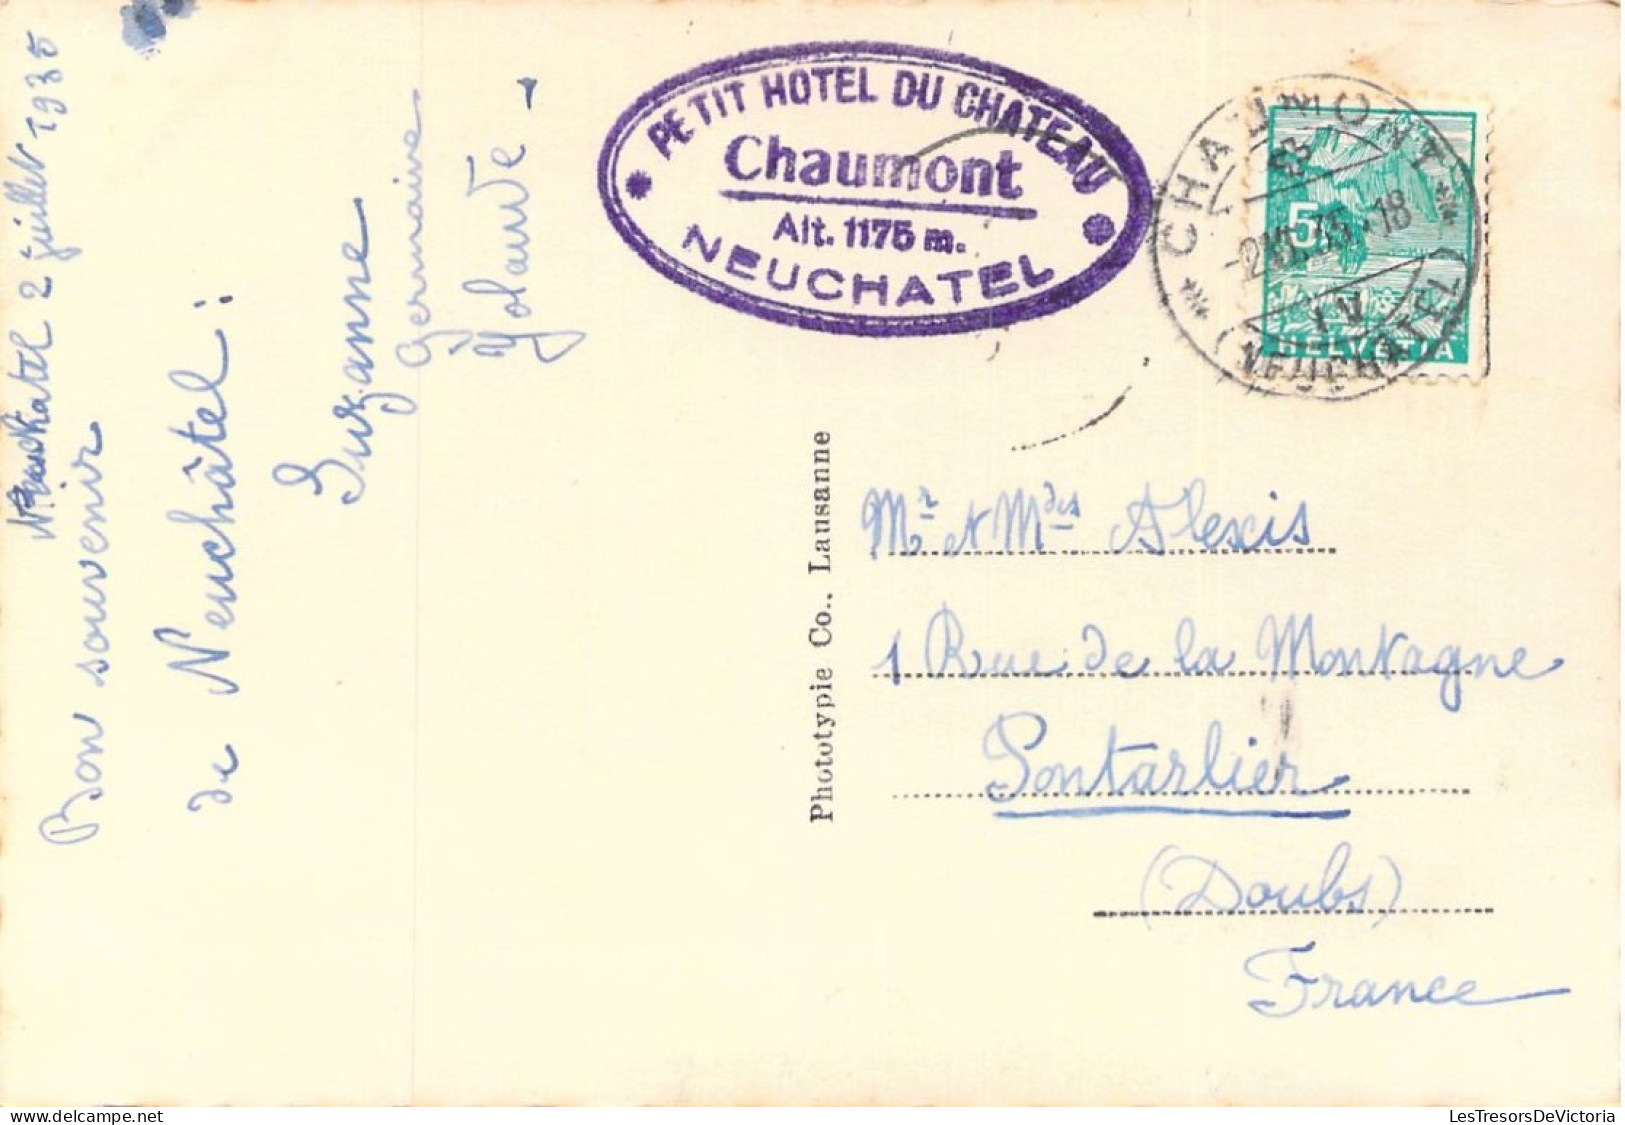 Neuchatel 2 juillet 1935
Bon souvenir
de Neuchâtel :
Suzanne
Germaine
Yolande -
PETIT HOTEL DU CHATEAU
Chaumont
Alt. 1175 m.
NEUCHATEL
CHAUMONT
(NEUCHATEL)
5
HELVETIA
Phototypie Co., Lausanne
Mr et Mdes Alexis
1 Rue de la Montagne
Pontarlier
(Doubs)
France
LesTresorsDeVictoria